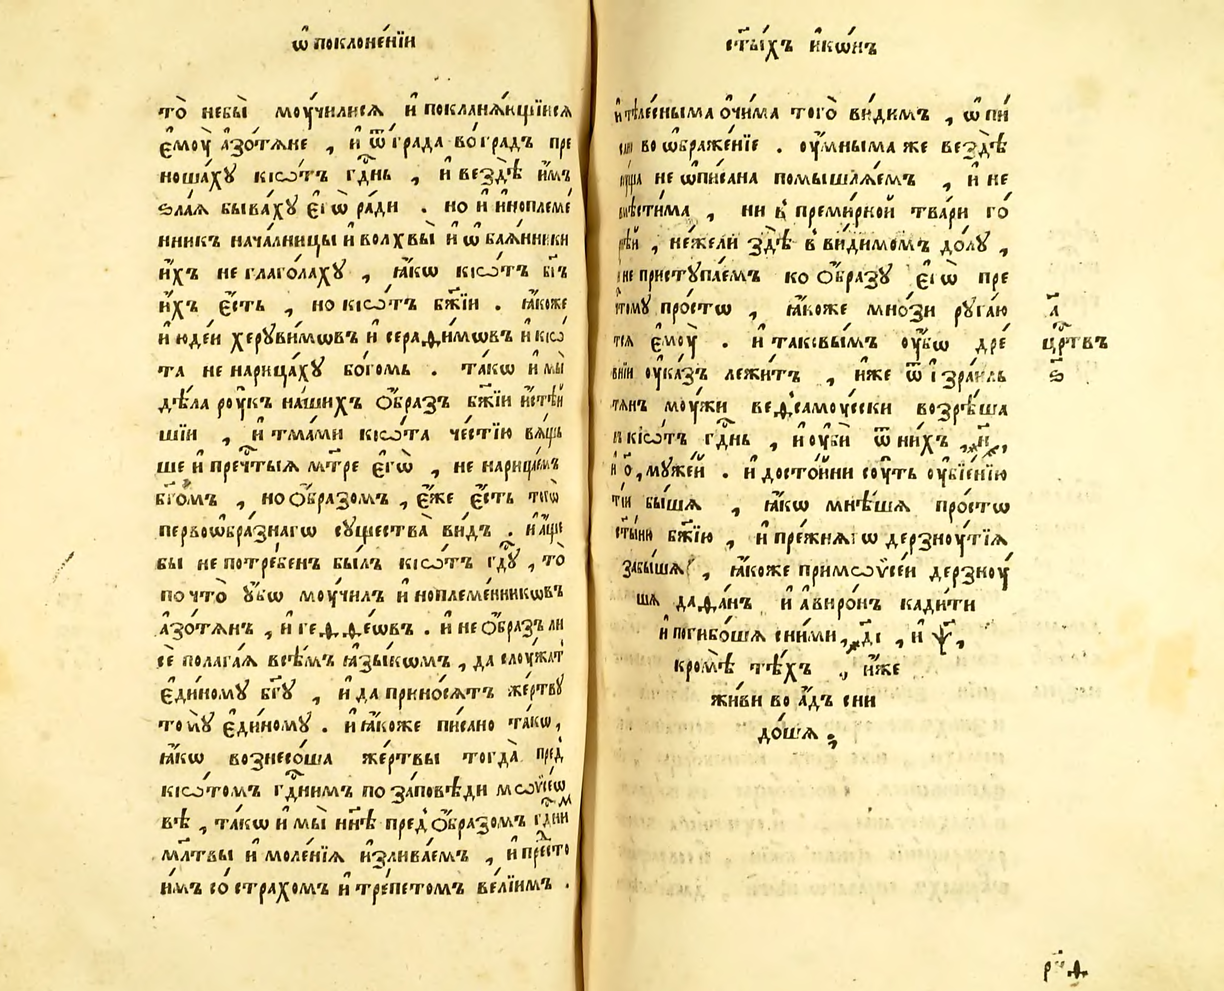 ѿ поклоне́нїи
то̀ небы̀ моу́чилисѧ и҆ покланѧ́ющїисѧ
є҆моу̀ а҆зѡ́тѧне , и҆ ѿ гра́да во́ градъ пре
ноша́хꙋ кїѡ́тъ гд҇нь , и҆ вездѣ̀ и҆мъ
ѕла́ѧ быва́хꙋ є҆гѡ̀ ра́ди . но и҆ и҆ноплеме́
нникъ нача́лницы и҆ волхвы̀ и҆ ѡ҆баѧ́нники
и҆́хъ не глаго́лахꙋ , ꙗ҆́кѡ кїѡ́тъ бг҃ъ
и҆́хъ є҆́сть , но кїѡ́тъ бж҃їи . ꙗ҆́коже
и҆ ю҆де́и херꙋви́мѡвъ и҆ серафи́мѡвъ и҆ кїѡ
та не нарица́хꙋ бо́гомь . та́кѡ и҆ мы̀
дѣ́ла роу́къ на́шихъ ѻ҆́бразъ бж҃їи
шїи , и҆ тма́ми кїѡ́та че́стїю вѧ́щь
ше и҆ преч҇тыѧ мт҃ре є҆гѡ̀ , не нарица́емъ
бг҃омъ , но ѻ҆́бразомъ , є҆́же є҆́сть
первоѡбра́знагѡ сꙋщества̀ ви́дъ . и҆ а҆́ще
бы не потре́бенъ бы́лъ кїѡ́тъ гд҇ꙋ , то̀
по что̀ ᲂу҆́бѡ моу́чилъ и҆ноплеме́нникѡвъ
а҆зѡ́тѧнъ , и҆ геффе́ѡвъ . и҆ не ѻ҆́бразъ ли
се́ полага́ѧ всѣ́мъ ꙗ҆зы́кѡмъ , да слоу́жатъ
є҆ди́номꙋ бг҃ꙋ , и҆ да прино́сѧтъ же́ртвꙋ
томꙋ̀ є҆ди́номꙋ . и҆ ꙗ҆́коже пи́сано та́кѡ ,
ꙗ҆́кѡ вознесо́ша же́ртвы тогда̀ пред̾
кїѡ́томъ гд҇нимъ по за́повѣди мѡѷсе́ѡ
вѣ , та́кѡ и҆ мы̀ нн҃ѣ пред̾ ѻ҆́бразомъ гд҇нимъ
мл҃твы и҆ моле́нїѧ и҆злива́емъ , и҆ престо
и́мъ со́ стра́хомъ и҆ тре́петомъ ве́лїимъ .
ст҃ы́хъ и҆кѡ́нъ
и҆ тѣле́сныма ѻ҆чи́ма того̀ ви́димъ , ѡ҆ пи́
во ѡ҆браже́нїе . ᲂу҆́мныма же вездѣ̀
не ѡ҆пи́сана помышлѧ́емъ , и҆ не
вмѣсти́ма , ни в̾ преми́рной тва́ри го́
рнѣй , не́жели здѣ̀ в̾ ви́димомъ до́лꙋ ,
не пристꙋпа́емъ ко ѻ҆́бразꙋ є҆гѡ̀ пре
ст҃омꙋ про́стѡ , ꙗ҆́коже мно́зи рꙋга́ю
тсѧ є҆моу̀ . и҆ таковы́мъ ᲂу҆́бѡ дре́
внїи ᲂу҆ка́зъ лежи́тъ , и҆́же ѿ і҆зра́иль
тѧнъ моу́жи веѳсамоу́ски возрѣ́ша
в̾ кїѡ́тъ гд҇нь , и҆ ᲂу҆бѝ ѿ ни́хъ , ҂н҃ ,
и҆ о҃ , мꙋже́й . и҆ досто́йни соу́ть ᲂу҆бїе́нїю
тїи бы́шѧ , ꙗ҆́кѡ мнѣ́шѧ про́стѡ
ст҃ы́ню бж҃їю , и҆ пре́жнѧгѡ дерзноу́тїѧ
забы́шѧ , ꙗ҆́коже при мѡѷсе́и дерзноу́
шѧ даѳа́нъ и҆ а҆виро́нъ кади́ти
и҆ погибо́шѧ с ни́ми , ҂д҃і , и҆ ѱ҃ ,
кро́мѣ тѣ́хъ , и҆́же
жи́ви во а҆́дъ сни
до́шѧ ;
а҃
цр҇твъ
ѕ҃
рн҃ѳ